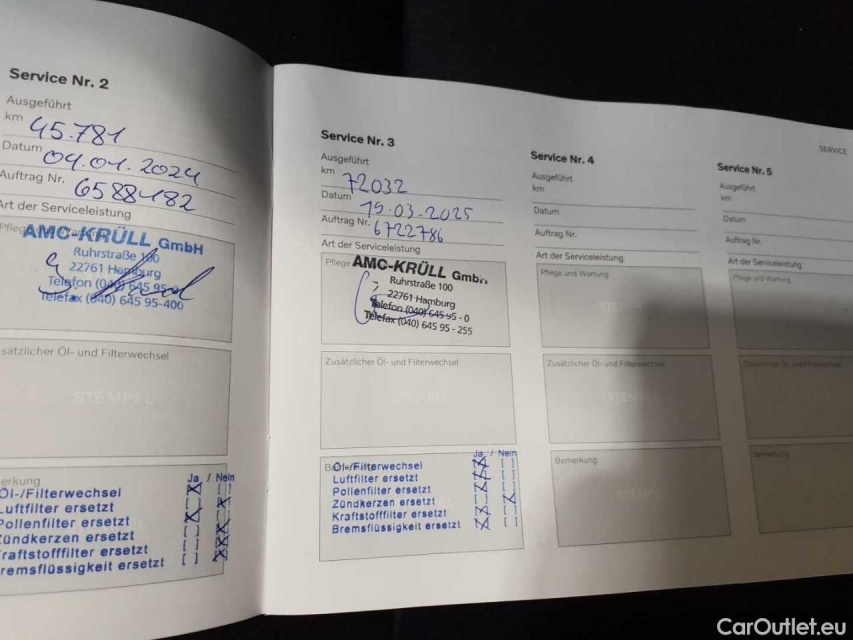 Service Nr. 2
Ausgeführt
km 45.781
Datum 09.01.2024
Auftrag Nr. 6588482
Art der Serviceleistung
AMC-KRÜLL GmbH
Ruhrstraße 100
22761 Hamburg
Telefon (040) 645 95
Telefax (040) 645 95-400
sätzlicher Öl- und Filterwechsel
STEMPEL
erkung
Ja / Nein
Öl-/Filterwechsel
Luftfilter ersetzt
Pollenfilter ersetzt
Zündkerzen ersetzt
Kraftstofffilter ersetzt
Bremsflüssigkeit ersetzt
Service Nr. 3
Ausgeführt
km 72032
Datum 19.03.2025
Auftrag Nr. 6722786
Art der Serviceleistung
Pflege
AMC-KRÜLL GmbH
Ruhrstraße 100
22761 Hamburg
Telefon (040) 645 95 - 0
Telefax (040) 645 95 - 255
Zusätzlicher Öl- und Filterwechsel
STEMPEL
Ja / Nein
Öl-/Filterwechsel
Luftfilter ersetzt
Pollenfilter ersetzt
Zündkerzen ersetzt
Kraftstofffilter ersetzt
Bremsflüssigkeit ersetzt
Service Nr. 4
Ausgeführt
km
Datum
Auftrag Nr.
Art der Serviceleistung
Pflege und Wartung
Zusätzlicher Öl- und Filterwechsel
Bemerkung
SERVICE
Service Nr. 5
Ausgeführt
km
Datum
Auftrag Nr.
Art der Serviceleistung
Pflege und Wartung
Zusätzlicher Öl- und Filterwechsel
Bemerkung
CarOutlet.eu